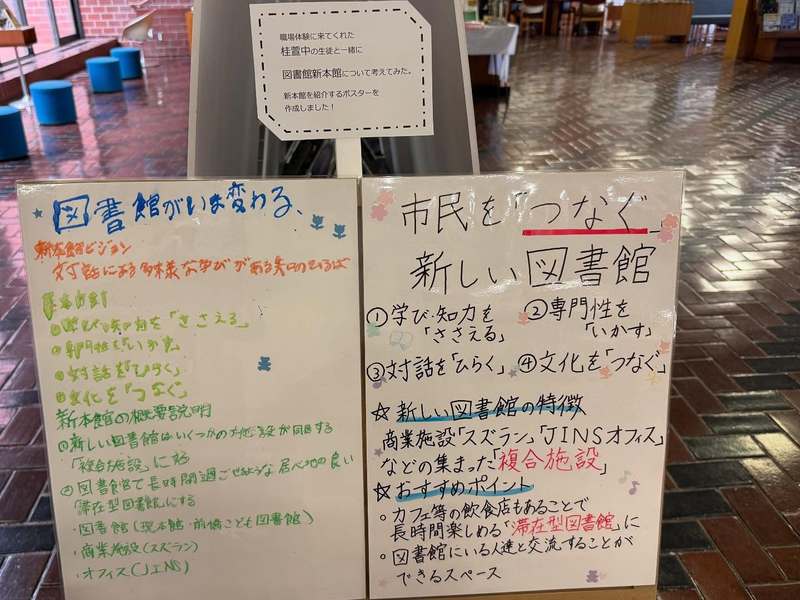 職場体験に来てくれた
桂萱中の生徒と一緒に
図書館新本館について考えてみた。
新本館を紹介するポスターを
作成しました！
図書館がいま変わる、
新本館ビジョン
対話による多様な学びがある知のひろば
①学び・知の力を「ささえる」
②専門性を「いかす」
③対話を「ひらく」
④文化を「つなぐ」
新本館の概要説明
①新しい図書館はいくつかの施設が同居する
「複合施設」になる
②図書館で長時間過ごせるような居心地の良い
「滞在型図書館」にする
・図書館(現本館・前橋こども図書館)
・商業施設(スズラン)
・オフィス(JINS)
市民を「つなぐ」
新しい図書館
①学び・知力を「ささえる」
②専門性を「いかす」
③対話を「ひらく」 ④文化を「つなぐ」
☆新しい図書館の特徴
商業施設「スズラン」「JINSオフィス」
などの集まった「複合施設」
☆おすすめポイント
・カフェ等の飲食店もあることで
長時間楽しめる「滞在型図書館」に
・図書館にいる人達と交流することが
できるスペース